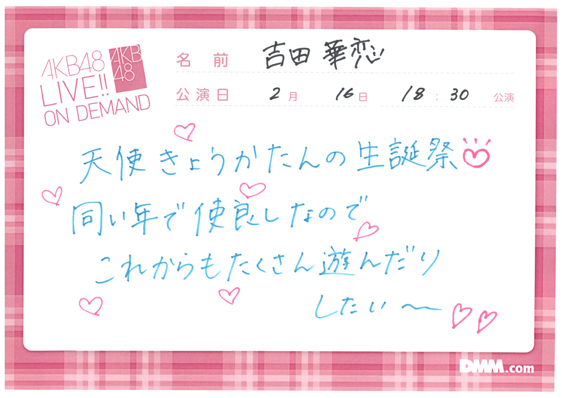 AKB48
LIVE!!
ON DEMAND
AKB
48
名前 吉田華恋
公演日 2月 16日 18:30 公演
天使きょうかたんの生誕祭
同い年で使良しなので
これからもたくさん遊んだり
したい〜
DMM.com